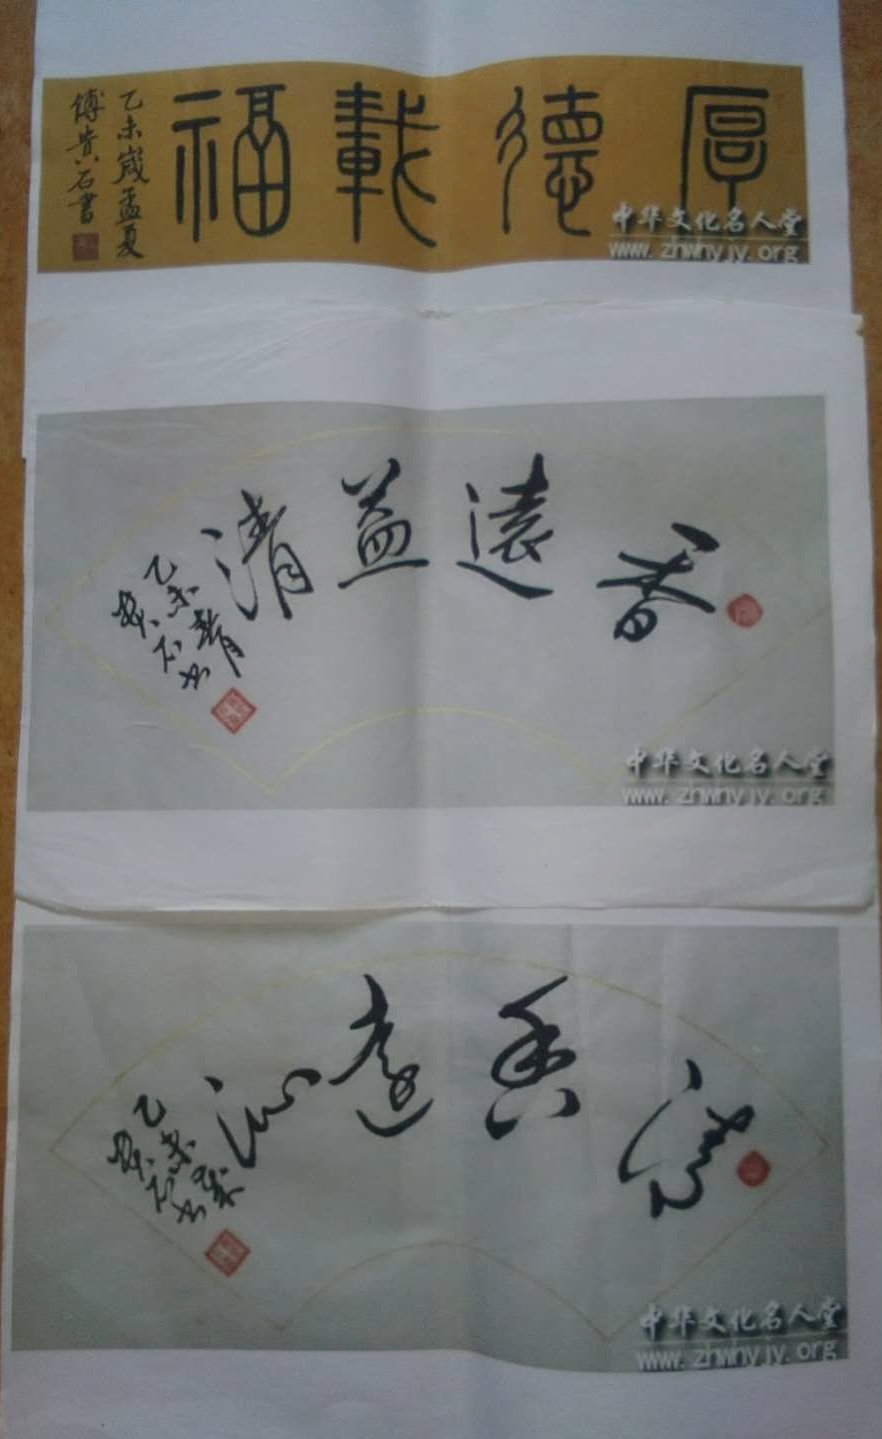 厚德載福
乙未歲孟夏
傅貴石書
中华文化名人堂
www.zhwhyjy.org
香遠益清
乙未
中华文化名人堂
www.zhwhyjy.org
清香遠沁
乙未歲
中华文化名人堂
www.zhwhyjy.org